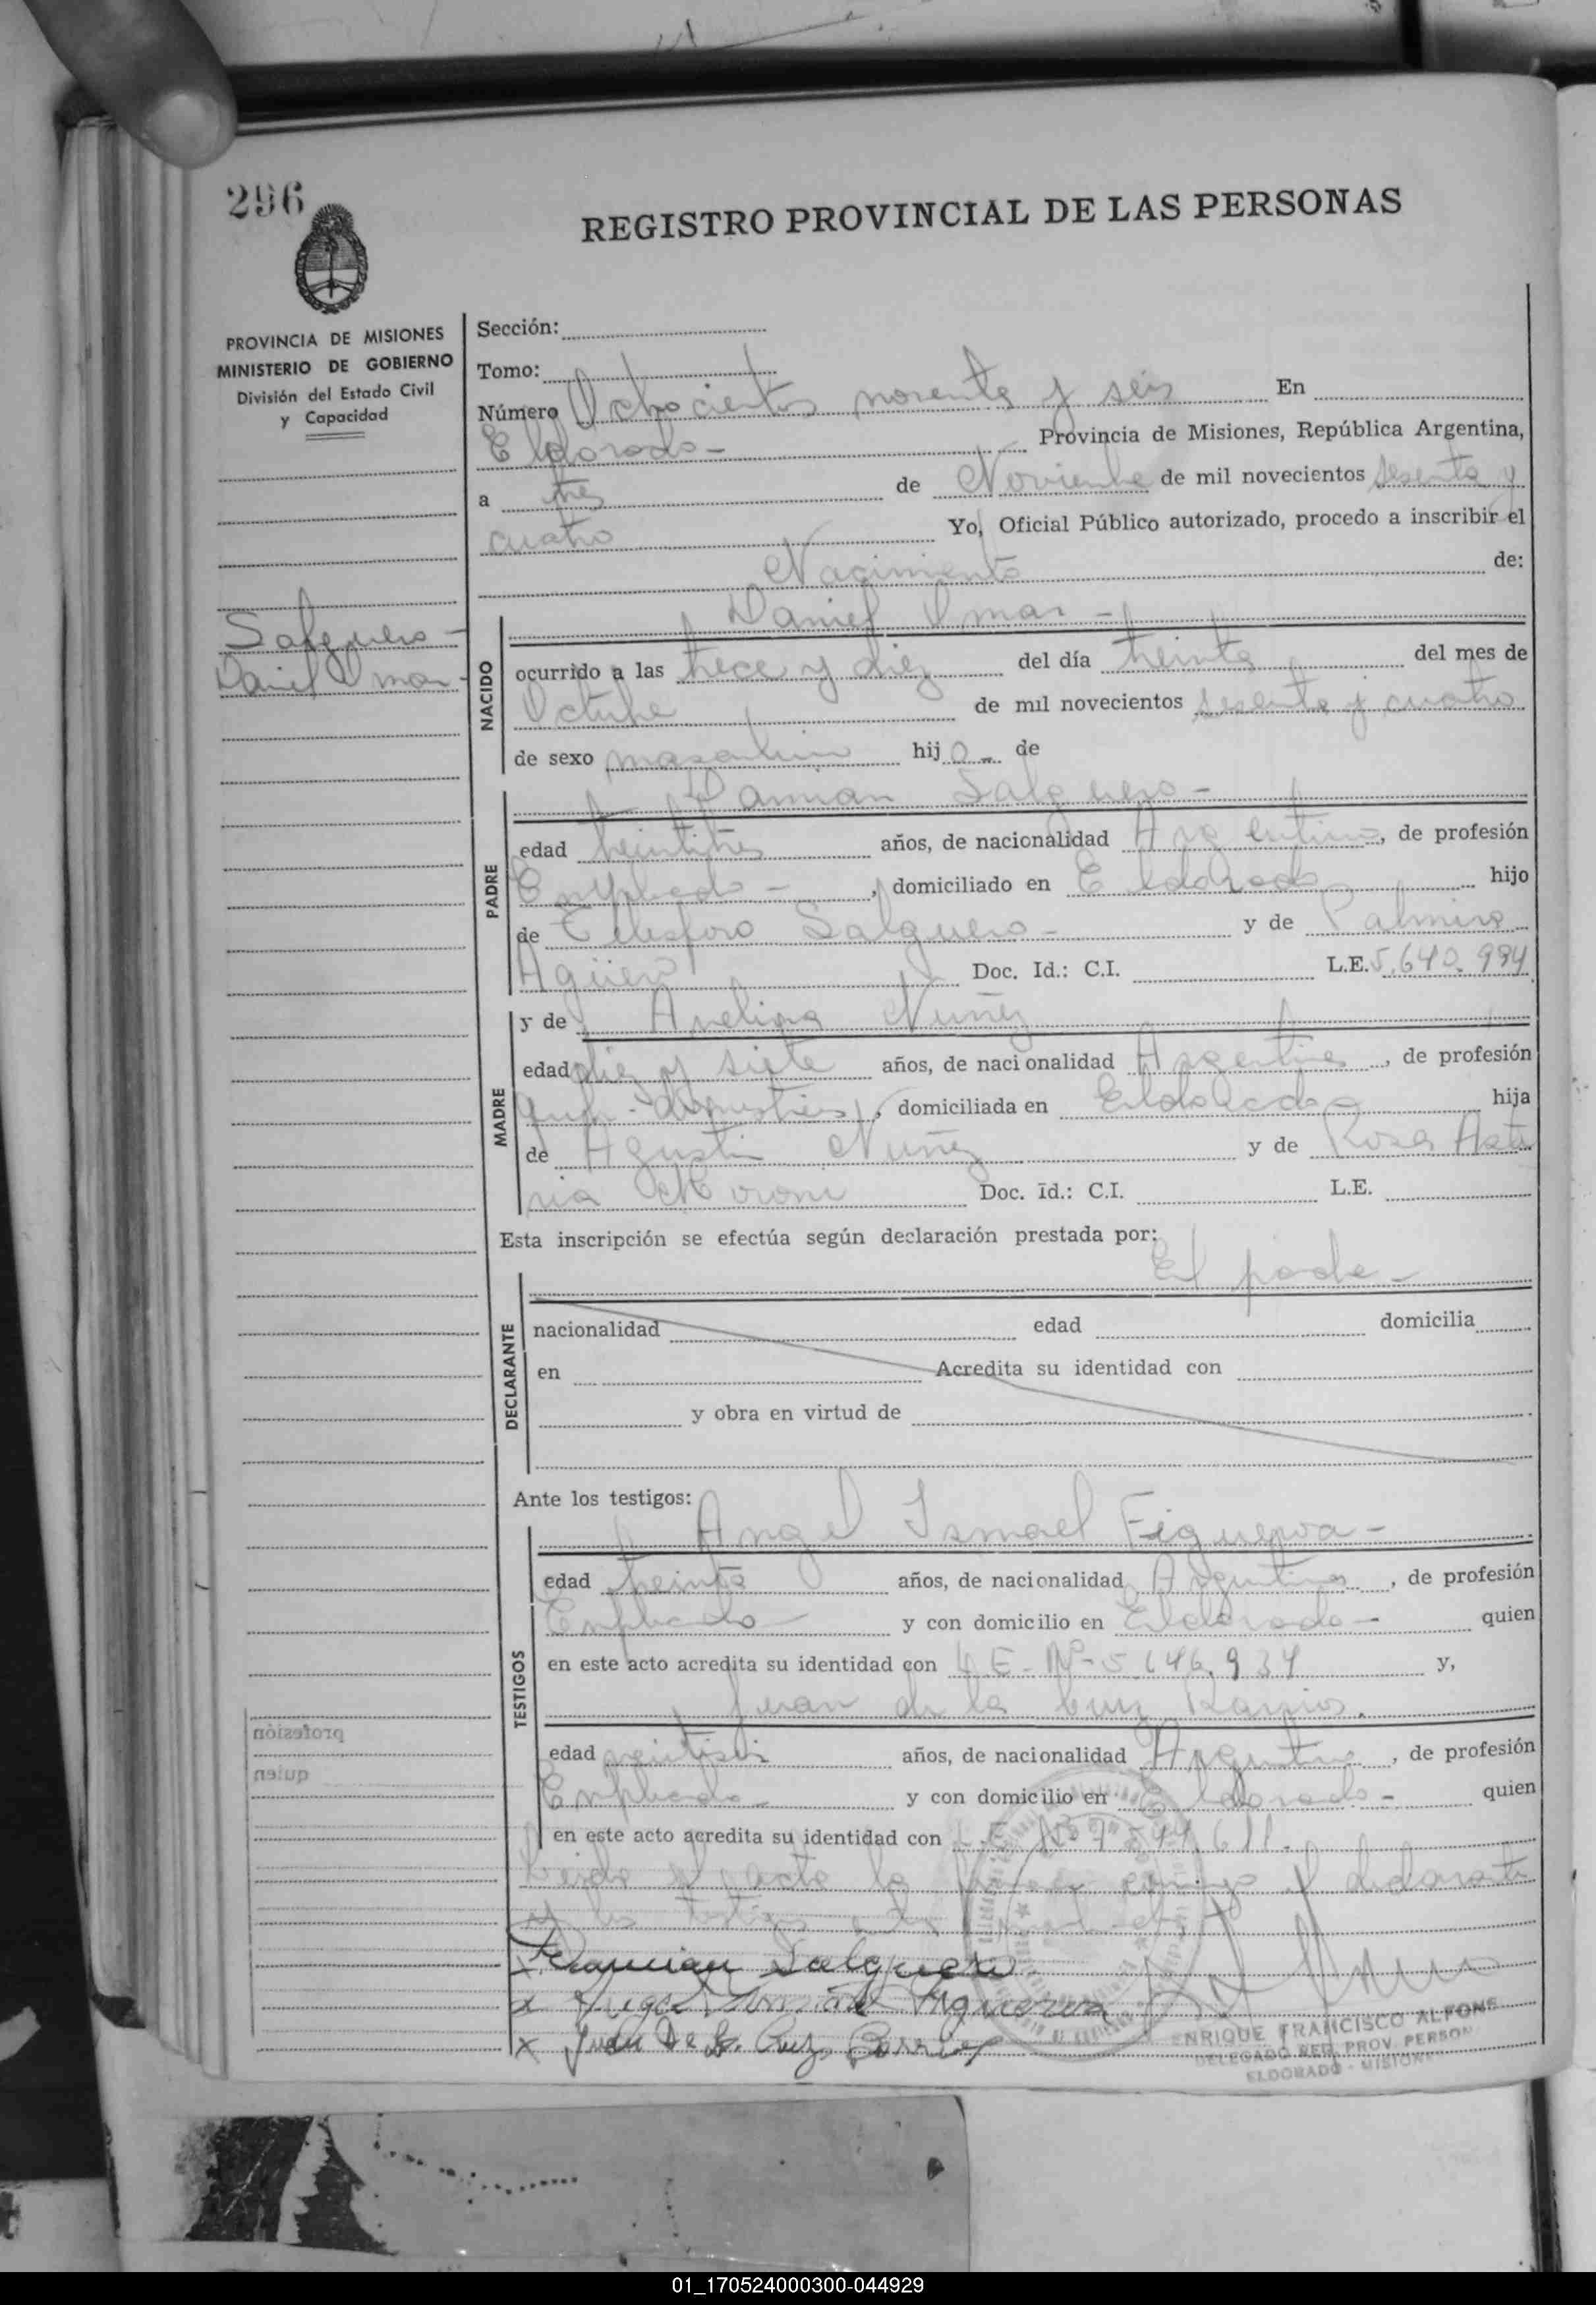 296
REGISTRO PROVINCIAL DE LAS PERSONAS
PROVINCIA DE MISIONES
MINISTERIO DE GOBIERNO
División del Estado Civil
y Capacidad
Salguero -
Daniel Omar -
Sección:
Tomo:
Número Ochocientos noventa y seis En
Eldorado - Provincia de Misiones, República Argentina,
a tres de Noviembre de mil novecientos sesenta y
cuatro Yo, Oficial Público autorizado, procedo a inscribir el
Nacimiento de:
Daniel Omar -
NACIDO
ocurrido a las trece y diez del día treinta del mes de
Octubre de mil novecientos sesenta y cuatro
de sexo masculino hijo - de
Damian Salguero -
PADRE
edad veintitres años, de nacionalidad Argentino, de profesión
Empleado - , domiciliado en Eldorado hijo
de Telesforo Salguero - y de Palmira
Agüero Doc. Id.: C.I. L.E. 5.640.994
MADRE
y de Avelina Nuñez
edad diez y siete años, de nacionalidad Argentina, de profesión
domiciliada en Eldorado hija
de Agustin Nuñez y de Rosa
Doc. Id.: C.I. L.E.
Esta inscripción se efectúa según declaración prestada por:
El padre -
DECLARANTE
nacionalidad edad domicilia
en Acredita su identidad con
y obra en virtud de
Ante los testigos:
Angel Ismael Figueroa -
TESTIGOS
edad treinta años, de nacionalidad Argentino, de profesión
Empleado - y con domicilio en Eldorado - quien
en este acto acredita su identidad con L E - Nº 5.646.934 y,
Juan de la Cruz Barrios.
edad años, de nacionalidad Argentino, de profesión
Empleado - y con domicilio en Eldorado - quien
en este acto acredita su identidad con L.E. Nº
Leida el acta la conmigo el declarante
y los testigos
Damian Salguero
x Angel Ismael Figueroa
x Juan De La Cruz Barrios
ENRIQUE FRANCISCO ALFONE
DELEGADO REG. PROV. PERSON
ELDORADO - MISIONES
profesión
quien
01_170524000300-044929